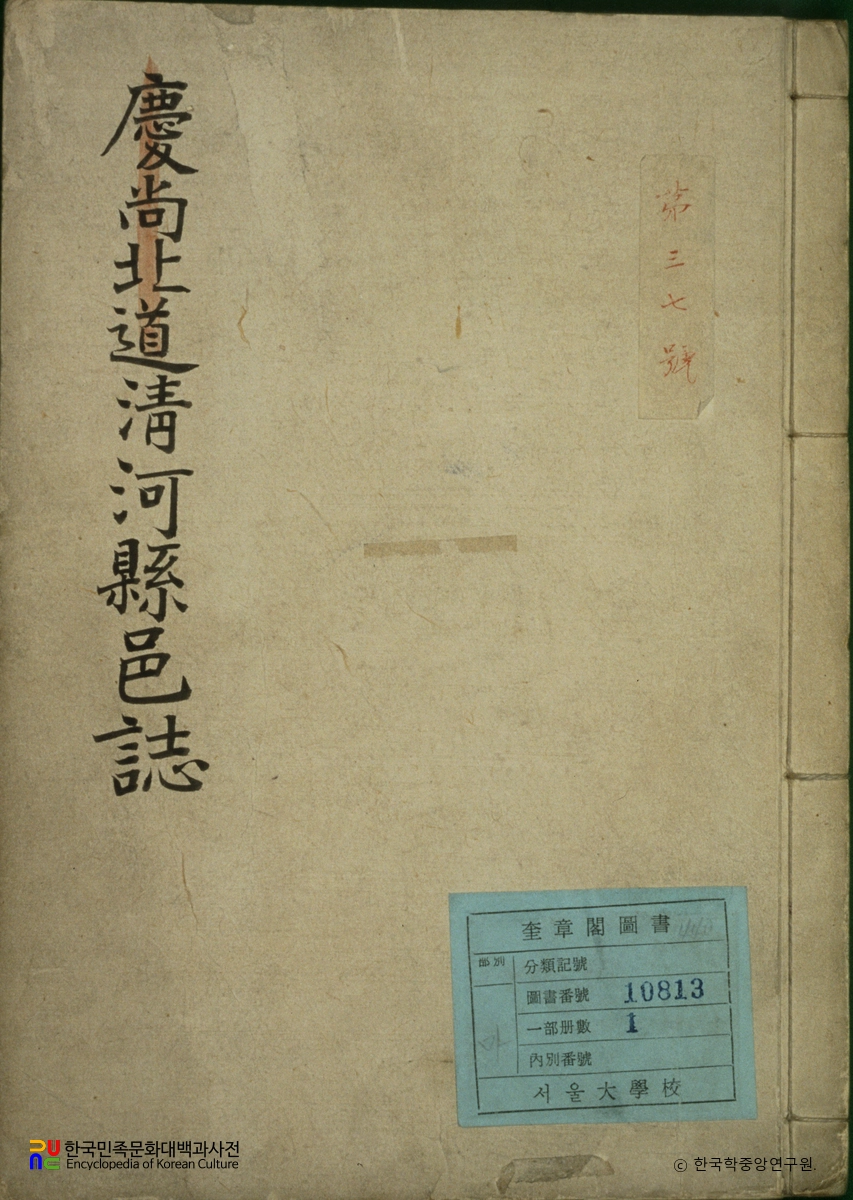 慶尚北道清河縣邑誌
第三七號
奎章閣圖書
部別
分類記號
圖書番號 10813
一部册數 1
內別番號
서울大學校
한국민족문화대백과사전
Encyclopedia of Korean Culture
© 한국학중앙연구원.